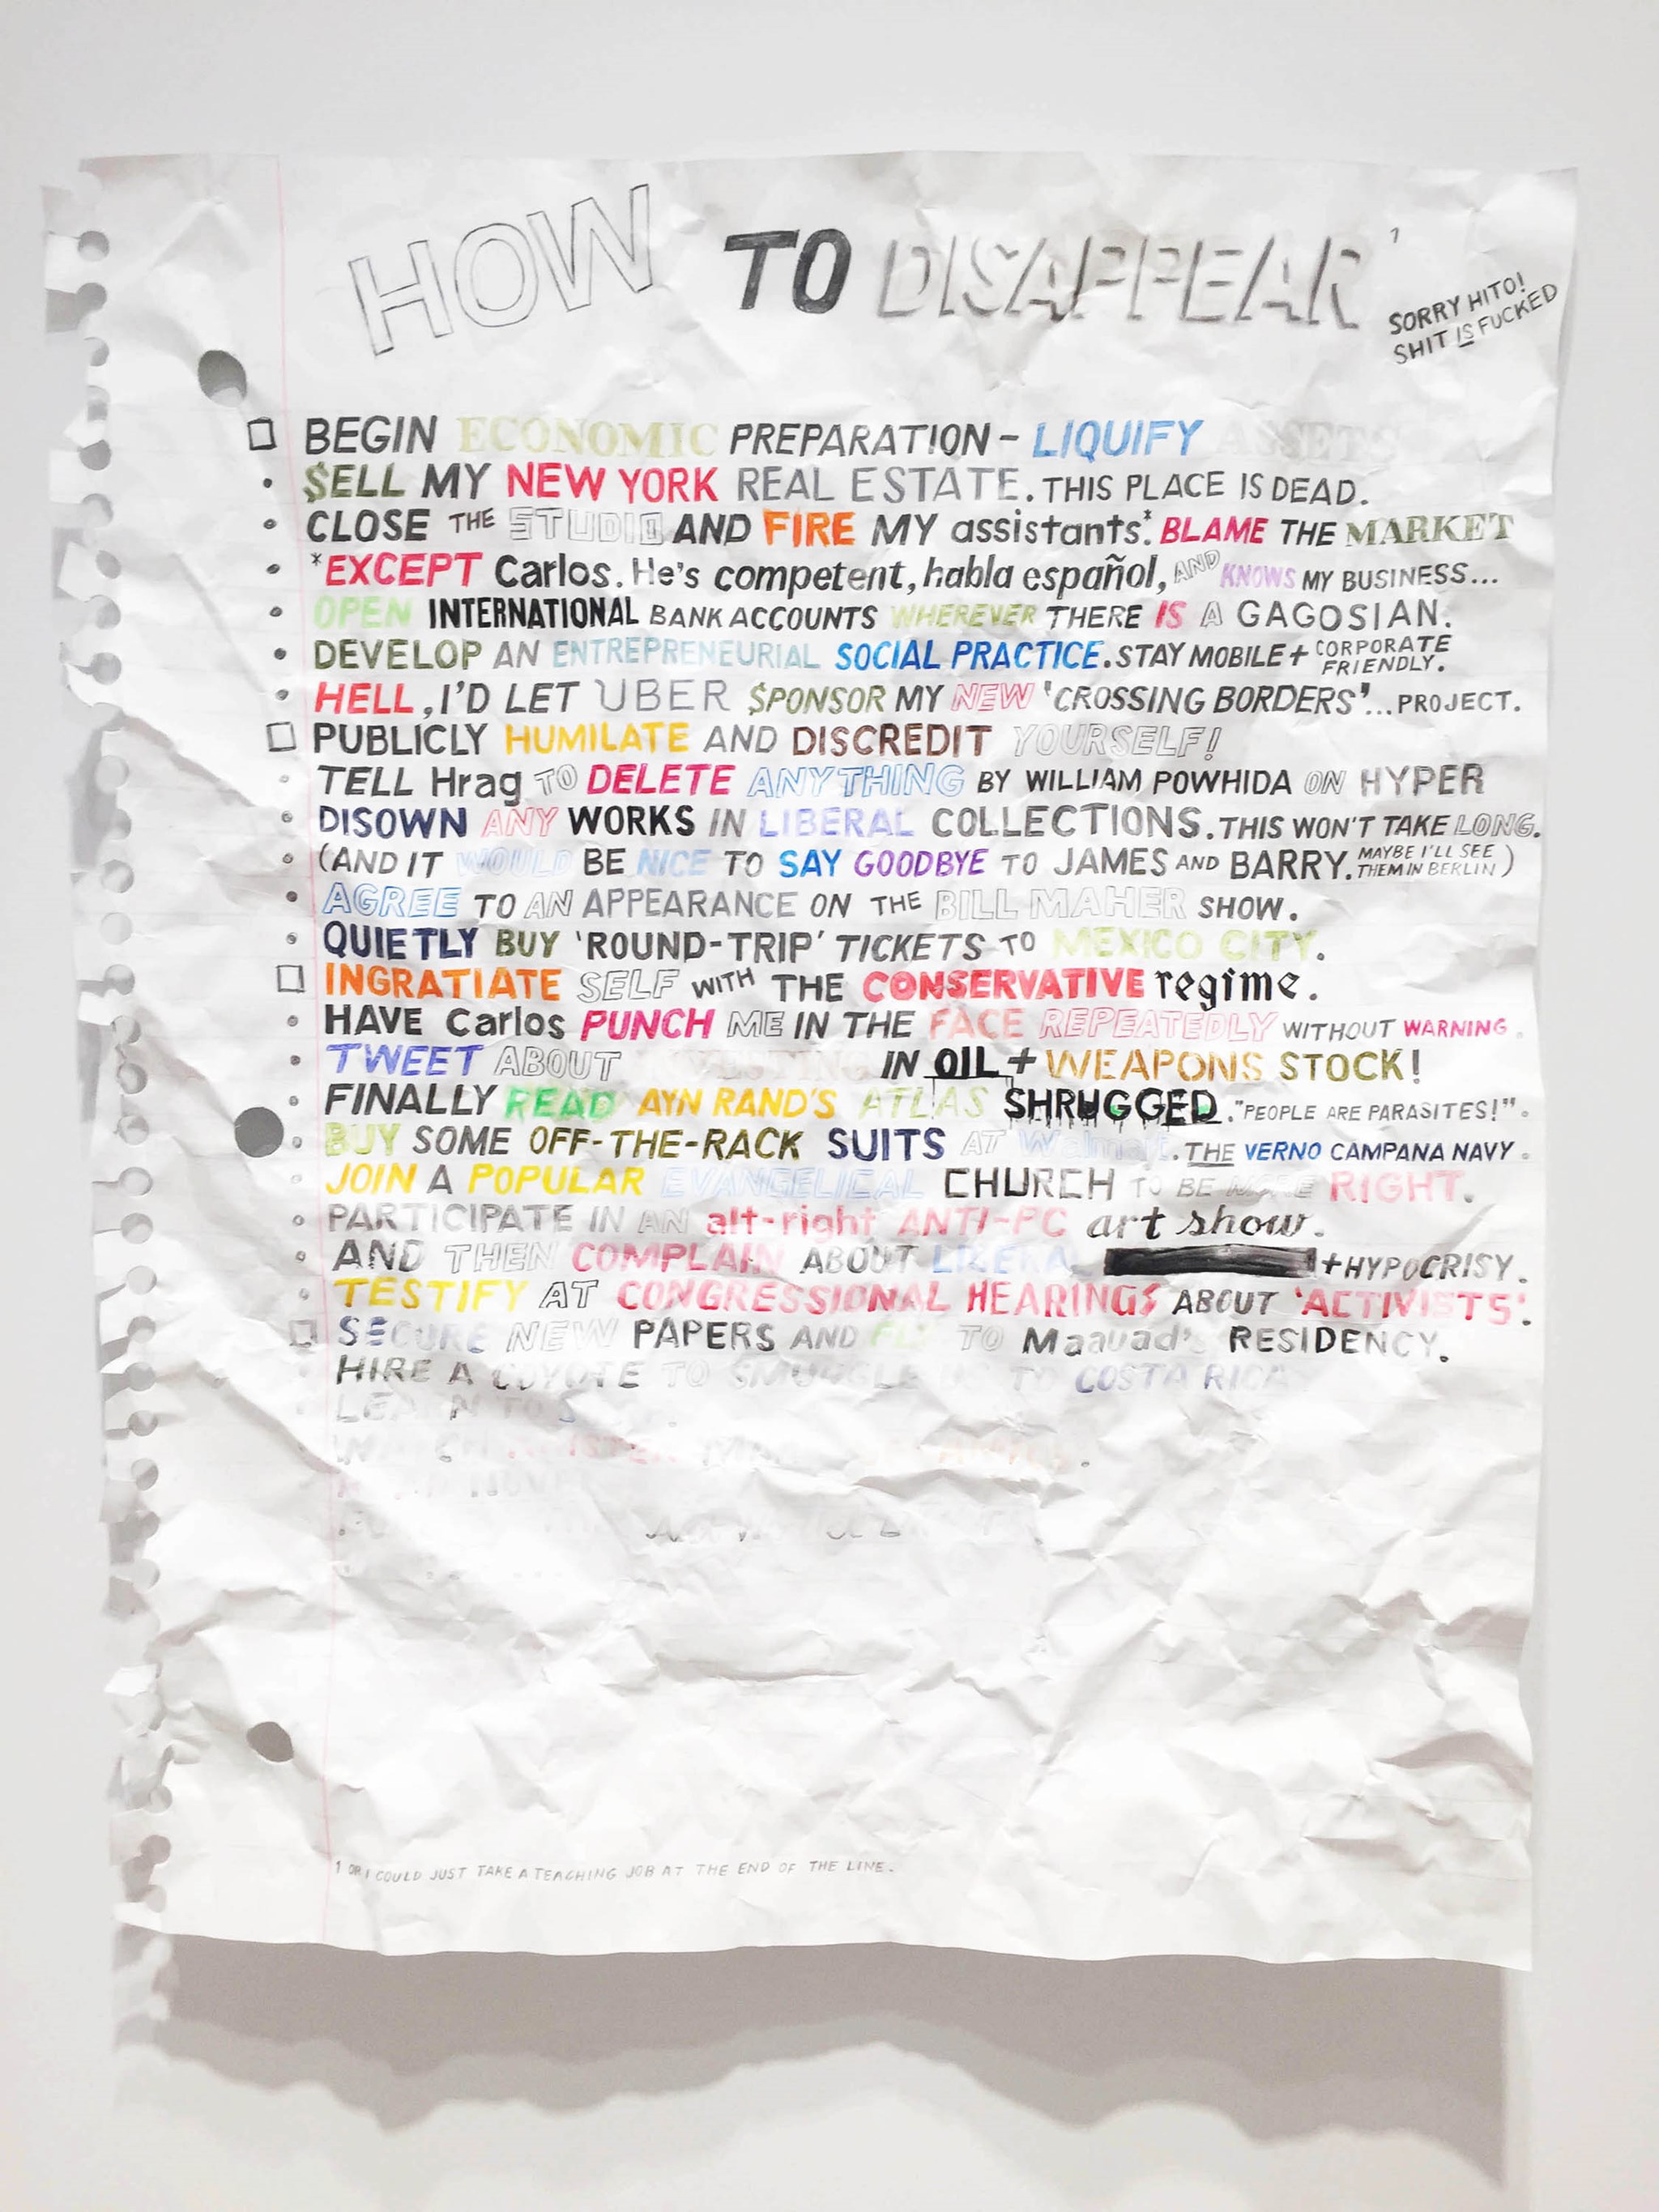 HOW TO DISAPPEAR¹
SORRY HITO!
SHIT IS FUCKED
BEGIN ECONOMIC PREPARATION - LIQUIFY ASSETS
• $ELL MY NEW YORK REAL ESTATE. THIS PLACE IS DEAD.
• CLOSE THE STUDIO AND FIRE MY assistants.* BLAME THE MARKET
• *EXCEPT Carlos. He's competent, habla español, AND KNOWS MY BUSINESS...
• OPEN INTERNATIONAL BANK ACCOUNTS WHEREVER THERE IS A GAGOSIAN.
• DEVELOP AN ENTREPRENEURIAL SOCIAL PRACTICE. STAY MOBILE + CORPORATE FRIENDLY.
• HELL, I'D LET UBER $PONSOR MY NEW 'CROSSING BORDERS'... PROJECT.
PUBLICLY HUMILATE AND DISCREDIT YOURSELF!
• TELL Hrag TO DELETE ANYTHING BY WILLIAM POWHIDA ON HYPER
• DISOWN ANY WORKS IN LIBERAL COLLECTIONS. THIS WON'T TAKE LONG.
• (AND IT WOULD BE NICE TO SAY GOODBYE TO JAMES AND BARRY. MAYBE I'LL SEE THEM IN BERLIN)
• AGREE TO AN APPEARANCE ON THE BILL MAHER SHOW.
• QUIETLY BUY 'ROUND-TRIP' TICKETS TO MEXICO CITY.
INGRATIATE SELF WITH THE CONSERVATIVE regime.
• HAVE Carlos PUNCH ME IN THE FACE REPEATEDLY WITHOUT WARNING.
• TWEET ABOUT INVESTING IN OIL + WEAPONS STOCK!
• FINALLY READ AYN RAND'S ATLAS SHRUGGED. "PEOPLE ARE PARASITES!".
• BUY SOME OFF-THE-RACK SUITS AT Walmart. THE VERNO CAMPANA NAVY.
• JOIN A POPULAR EVANGELICAL CHURCH TO BE MORE RIGHT.
• PARTICIPATE IN AN alt-right ANTI-PC art show.
• AND THEN COMPLAIN ABOUT LIBERAL + HYPOCRISY.
• TESTIFY AT CONGRESSIONAL HEARINGS ABOUT 'ACTIVISTS'.
SECURE NEW PAPERS AND FLY TO Maauad's RESIDENCY.
HIRE A COYOTE TO SMUGGLE TO COSTA RICA
LEARN TO
1 OR I COULD JUST TAKE A TEACHING JOB AT THE END OF THE LINE.